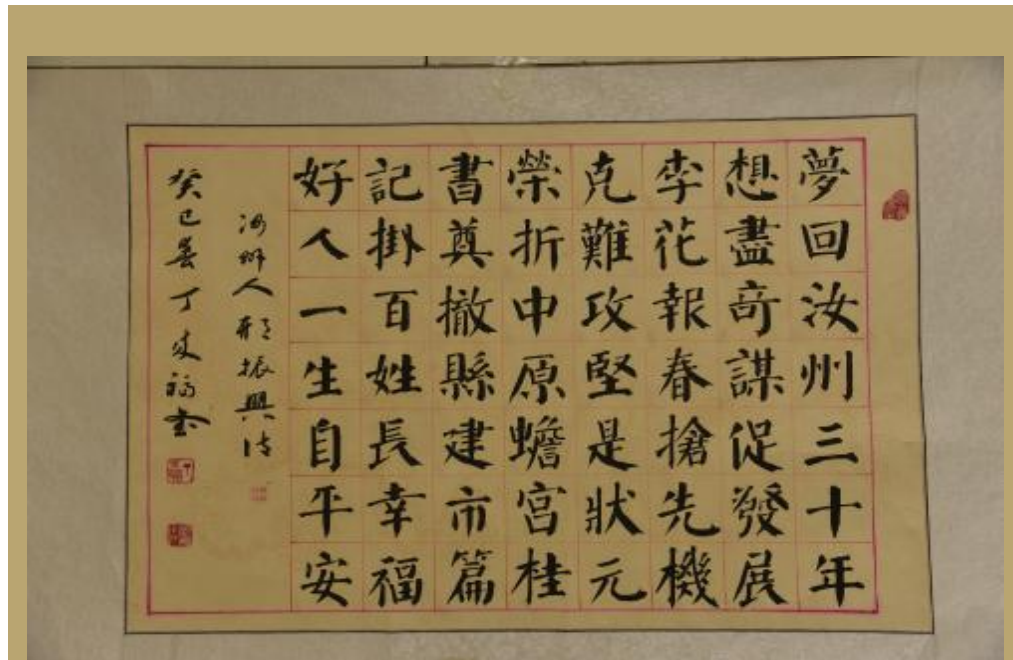 夢回汝州三十年
想盡奇謀促發展
李花報春搶先機
克難攻堅是狀元
榮折中原蟾宮桂
書奠撤縣建市篇
記掛百姓長幸福
好人一生自平安
汝州人 邢振興詩
癸巳 丁 福書